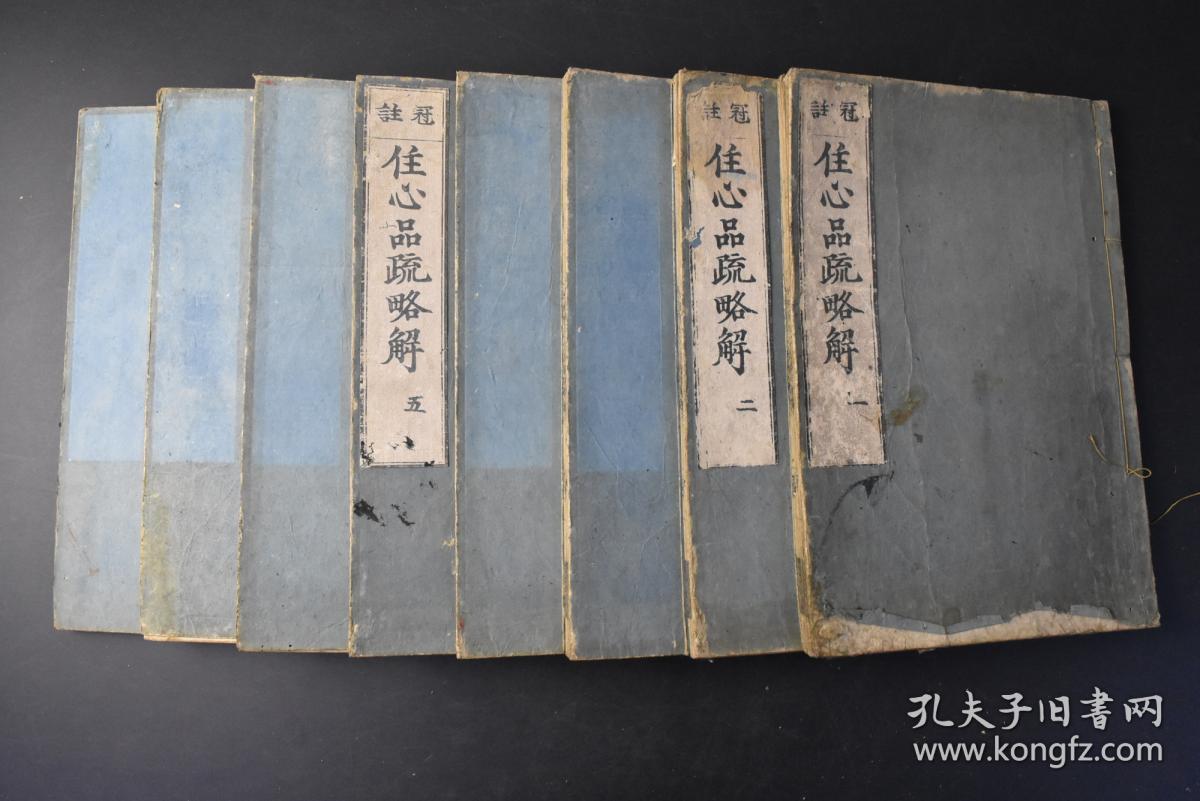 冠註
住心品疏略解
一
冠註
住心品疏略解
二
冠註
住心品疏略解
五
孔夫子旧书网
www.kongfz.com